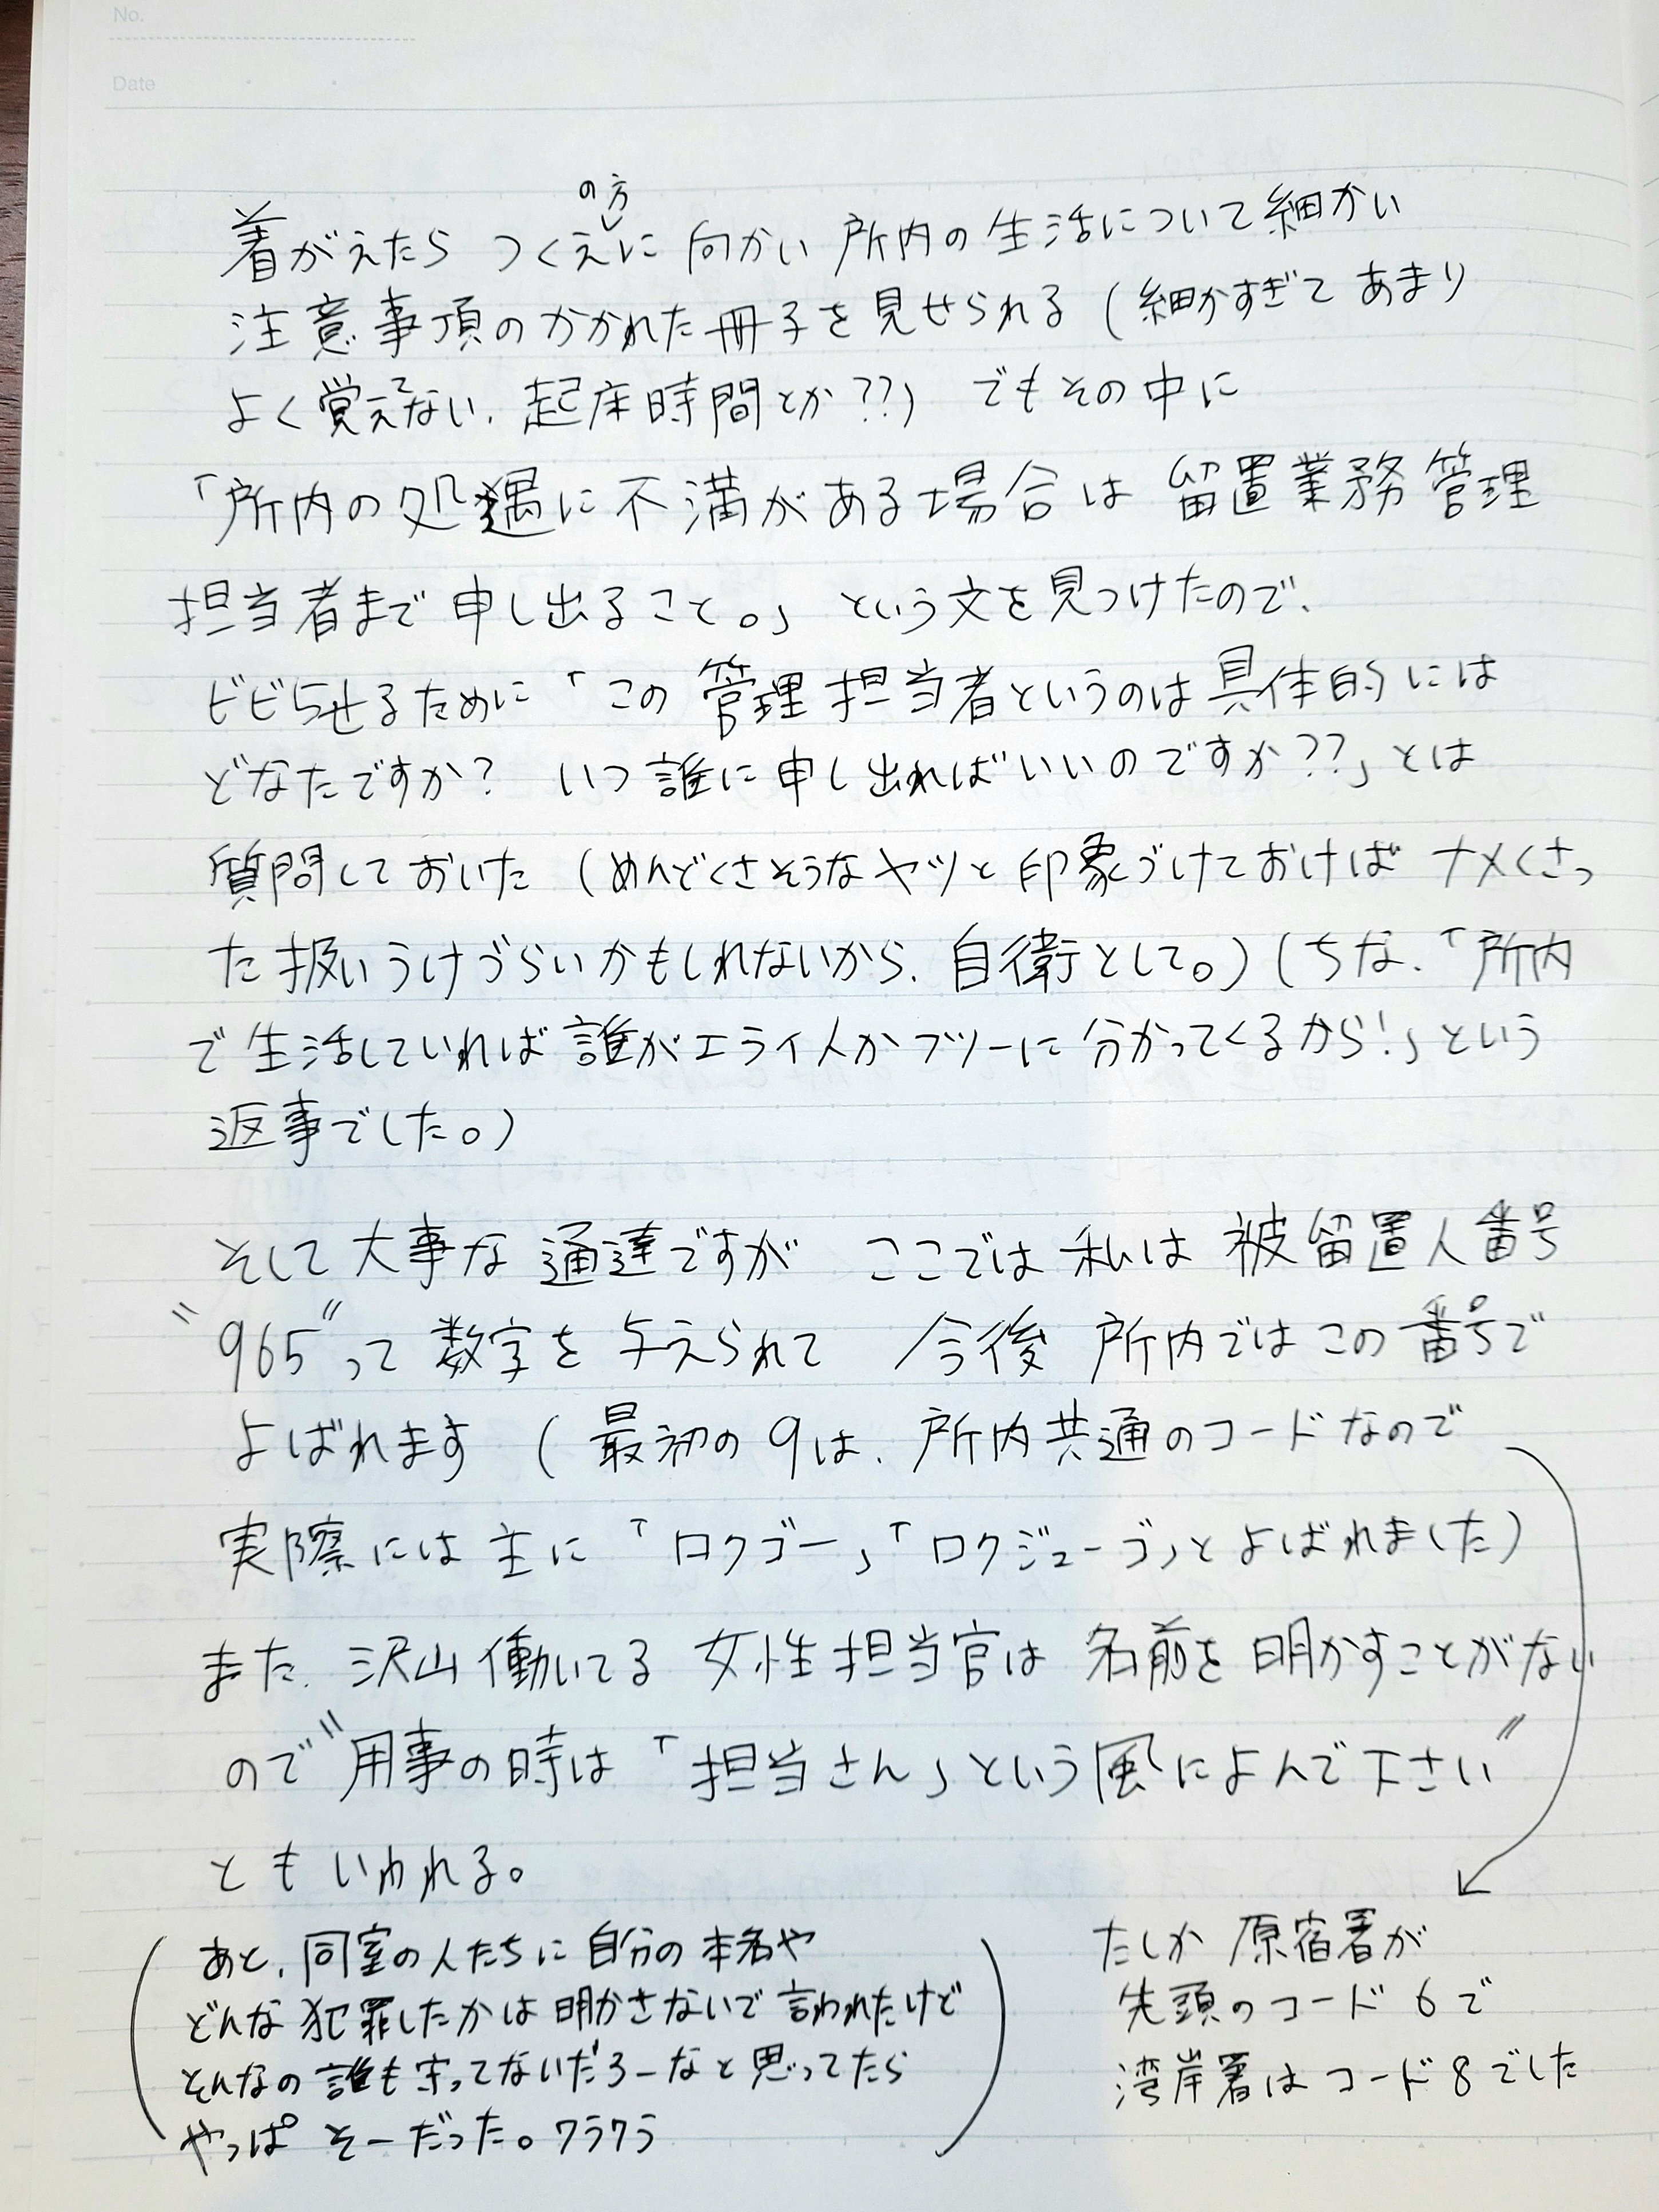 No.
Date
の方
着がえたら つくえに 向かい 所内の 生活について 細かい
注意事項の かかれた 冊子を 見せられる (細かすぎて あまり
よく 覚えてない、起床時間とか??) でもその中に
「所内の処遇に不満がある場合は 留置業務管理
担当者まで 申し出ること。」 という文を見つけたので、
ビビらせるために 「この 管理担当者というのは具体的には
どなたですか? いつ誰に申し出ればいいのですか??」とは
質問しておいた (めんどくさそうなヤツと 印象づけておけば ナメくさっ
た扱いうけづらいかもしれないから、自衛として。) (ちな、「所内
で生活していれば誰がエライ人かフツーに分かってくるから!」という
返事でした。)
そして大事な 通達ですが ここでは 私は 被留置人番号
"965"って数字を 与えられて 今後 所内ではこの番号で
よばれます (最初の9は、所内共通のコードなので
実際には 主に 「ロクゴー」「ロクジューゴ」とよばれました)
また、沢山働いてる 女性担当官は 名前を 明かすことがない
ので "用事の時は 「担当さん」という風によんで下さい"
ともいわれる。
(あと、同室の人たちに 自分の 本名や
どんな 犯罪したかは 明かさないで 言われたけど
そんなの 誰も守ってないだろーなと 思ってたら
やっぱ そーだった。ワラワラ)
たしか 原宿署が
先頭のコード 6で
湾岸署は コード8でした